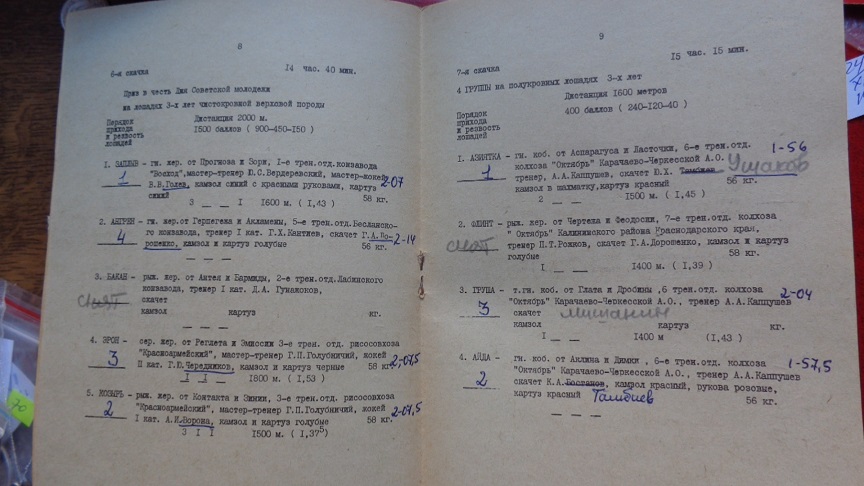 8
6-я скачка
14 час. 40 мин.
Приз в честь Дня Советской молодежи
на лошадях 3-х лет чистокровной верховой породы
Порядок прихода и резвость лошадей
Дистанция 2000 м.
1500 баллов ( 900-450-150 )
1. ЗАПЛЫВ - гн. жер. от Прогноза и Зори, 1-е трен.отд.конзавода
1
"Восход",мастер-тренер Ю.С.Вердеревский, мастер-жокей
В.В.Голев, камзол синий с красными рукавами, картуз 2-07
синий
58 кг.
3 __ 1 1600 м. ( 1,43 )
2. АНГРЕН - гн. жер.от Герцегева и Акламены, 5-е трен.отд.Беслане-
4
го конзавода, тренер 1 кат. Г.Х.Кантиев, скачет Г.А.До-
рошенко, камзол и картуз голубые
2-14
56 кг.
— — —
3. БАКАН - рыж. жер. от Антея и Бармиды, 2-е трен.отд.Лабинского
снят
конзавода, тренер 1 кат. Д.А. Гунажоков,
скачет
камзол картуз кг.
4. ЭРОН - сер. жер. от Реглета и Эписсии 3-е трен. отд. рисосовхоза
3
"Красноармейский", мастер-тренер Г.П.Голубничий, жокей
II кат. Г.Ю.Чередников, камзол и картуз черные 58 кг. 2-07,5
1 1 — 1800 м. ( 1,53 )
5. КОЗЫРЬ - рыж. жер. от Контакта и Зинии, 3-е трен.отд. рисосовхоза
2
"Красноармейский", мастер-тренер Г.П.Голубничий, жокей
2-07,5
1 кат. А.И.Ворона, камзол и картуз голубые 58 кг.
3 1 1 1500 м. ( 1,37⁵)
9
7-я скачка
15 час. 15 мин.
4 ГРУППЫ на полукровных лошадях 3-х лет
Дистанция 1600 метров
Порядок прихода и резвость лошадей
400 баллов ( 240-120-40 )
1. АЗИНТКА - гн. коб. от Аспарагуса и Ласточки, 6-е трен.отд. 1-56
1
колхоза "Октябрь" Карачаево-Черкесской А.О.
тренер, А.А.Каппушев, скачет Ю.Х. Тамбиев Ушаков
камзол в шахматку,картуз красный 56 кг.
2 — — 1500 м. ( 1,45 )
2. ФЛИНТ - рыж. жер. от Чертежа и Феодосии, 7-е трен.отд. колхоза
снят
" Октябрь" Калининского района Краснодарского края,
тренер П.Т.Рожков, скачет Г.А.Дорошенко, камзол и картуз
голубые 58 кг.
1 — — 1400 м. ( 1,39 )
3. ГРУША - т.гн. коб. от Глата и Дробины ,6 трен.отд. колхоза 2-04
3
"Октябрь" Карачаево-Черкесской А.О., тренер А.А.Каппушев
скачет
камзол картуз кг.
1 — — 1400 м (1,43 )
4. АИДА - гн. коб. от Аклина и Димки , 6-е трен.отд. колхоза 1-57,5
2
"Октябрь" Карачаево-Черкесской А.О., тренер А.А.Каппушев
скачет К.А.Бостанов, камзол красный, рукова розовые,
картуз красный Тамбиев 56 кг.
— — —
70